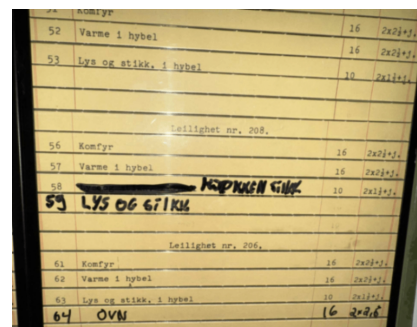 51 Komfyr
52 Varme i hybel 16 2x2½+j.
16 2x2½+j.
53 Lys og stikk. i hybel 10 2x1½+j.
Leilighet nr. 208.
56 Komfyr 16 2x2½+j.
57 Varme i hybel 16 2x2½+j.
58 10 2x1½+j.
59 LYS OG STIKK
Leilighet nr. 206.
61 Komfyr 16 2x2½+j.
62 Varme i hybel 16 2x2½+j.
63 Lys og stikk. i hybel 10 2x1½+j.
64 OVN 16 2x2,5